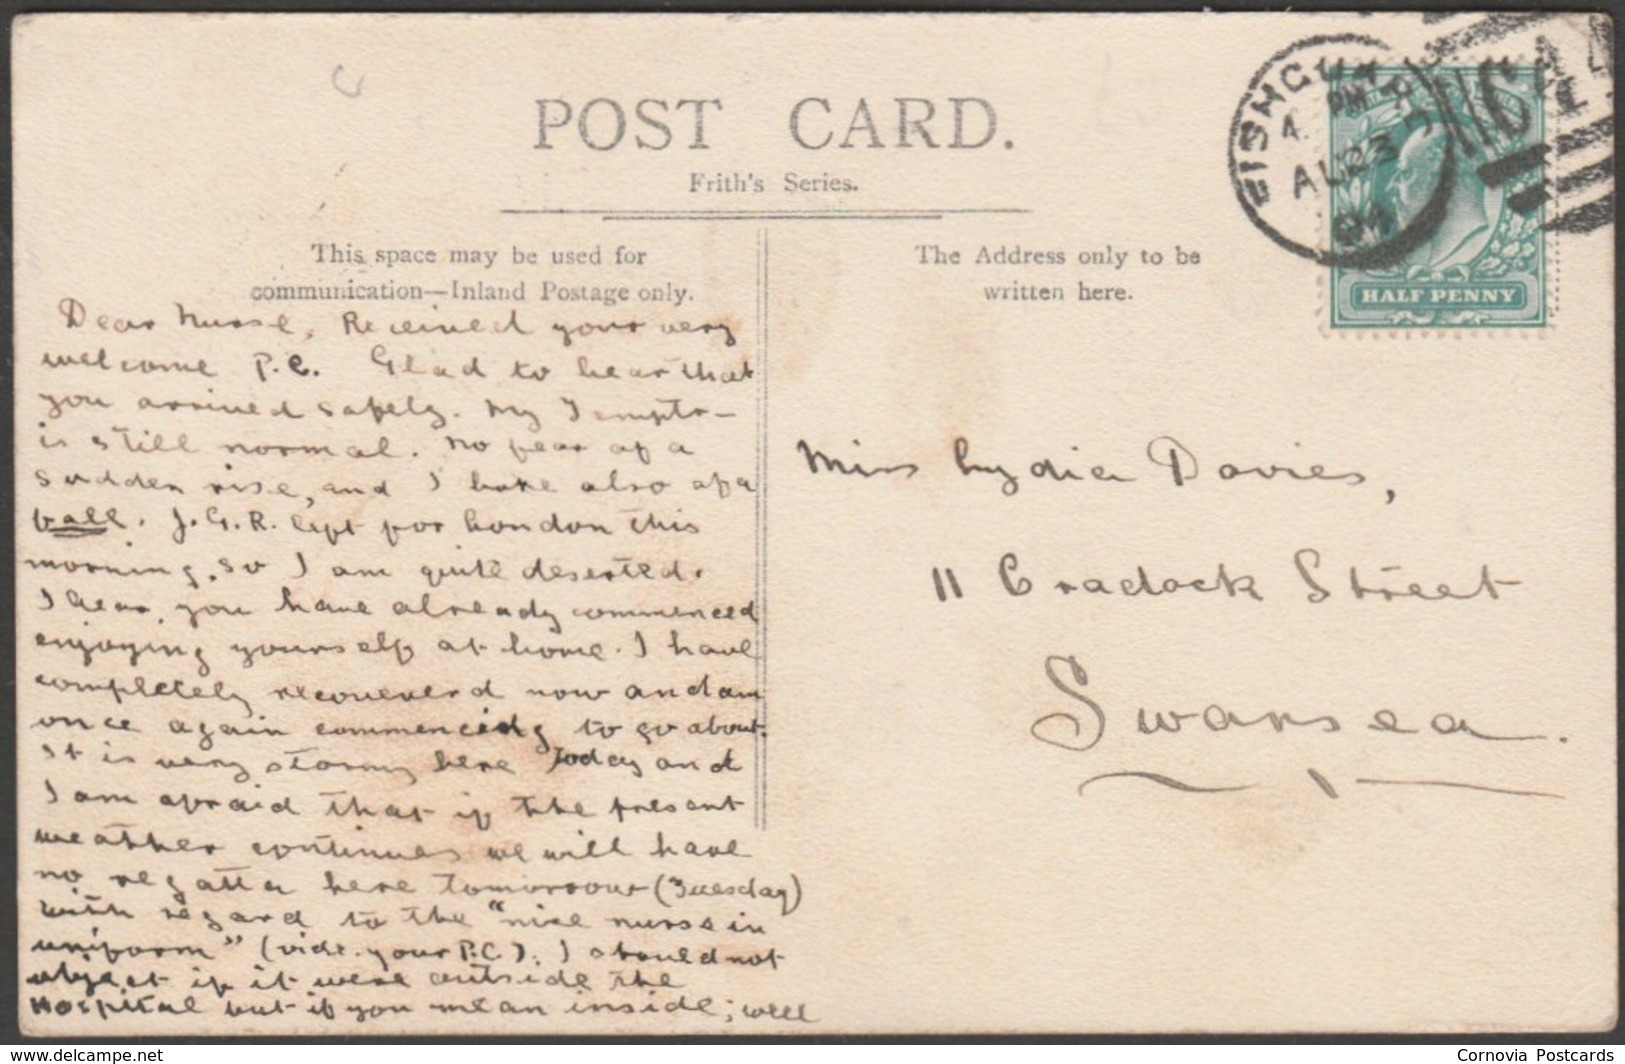 POST CARD.
Frith's Series.
This space may be used for
communication—Inland Postage only.
The Address only to be
written here.
FISHGUA
4. PM
AU 23
04
HALF PENNY
Dear Nurse, Received your very
welcome P.C. Glad to hear that
you arrived safely. My Temptr-
is still normal. No fear of a
sudden rise, and I hope also of a
ball. J.G.R. left for London this
morning, so I am quite deserted.
I hear, you have already commenced
enjoying yourself at home. I have
completely recovered now and am
once again commencing to go about.
It is very stormy here Today and
I am afraid that if the present
weather continues we will have
no regatta here tomorrow (Tuesday)
with regard to the "nice nurse in
uniform" (vide. your P.C.). I should not
object if it were outside the
Hospital but if you mean inside; well
Miss Lydia Davies,
11 Cradock Street
Swansea.
Cornovia Postcards
delcampe.net